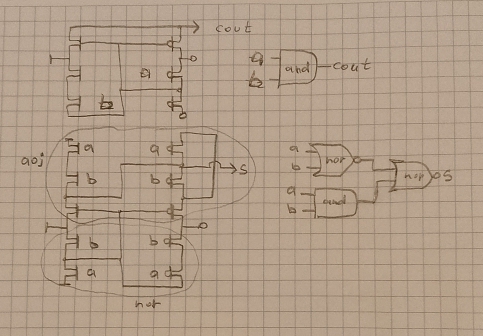 cout
a
b
a
b
and
cout
aoi
a
a
b
b
S
b
b
a
a
nor
a
b
nor
a
b
and
nor
S